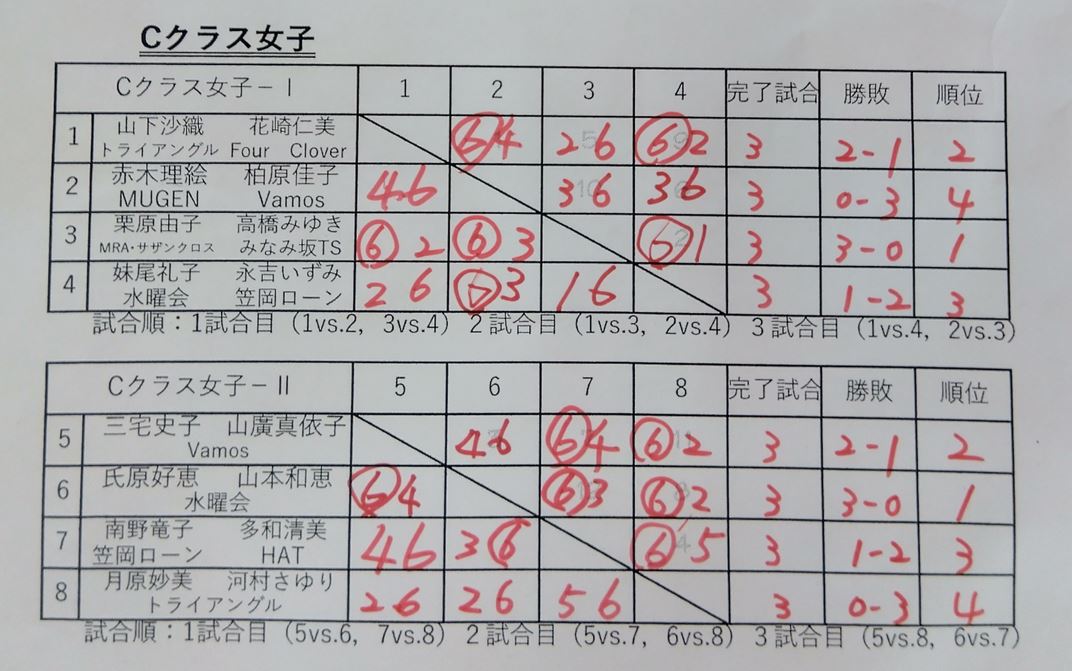 Cクラス女子
Cクラス女子－Ⅰ 1 2 3 4 完了試合 勝敗 順位
1 山下沙織 花崎仁美 ⑥4 2 6 ⑥2 3 2-1 2
トライアングル Four Clover
2 赤木理絵 柏原佳子 4 6 3 6 3 6 3 0-3 4
MUGEN Vamos
3 栗原由子 高橋みゆき ⑥ 2 ⑥ 3 ⑥1 3 3-0 1
MRA・サザンクロス みなみ坂TS
4 妹尾礼子 永吉いずみ 2 6 ⑥3 1 6 3 1-2 3
水曜会 笠岡ローン
試合順：1試合目（1vs.2, 3vs.4）2試合目（1vs.3, 2vs.4）3試合目（1vs.4, 2vs.3）
Cクラス女子－Ⅱ 5 6 7 8 完了試合 勝敗 順位
5 三宅史子 山廣真依子 4 6 ⑥4 ⑥2 3 2-1 2
Vamos
6 氏原好恵 山本和恵 ⑥4 ⑥3 ⑥2 3 3-0 1
水曜会
7 南野竜子 多和清美 4 6 3 ⑥ ⑥5 3 1-2 3
笠岡ローン HAT
8 月原妙美 河村さゆり 2 6 2 6 5 6 3 0-3 4
トライアングル
試合順：1試合目（5vs.6, 7vs.8）2試合目（5vs.7, 6vs.8）3試合目（5vs.8, 6vs.7）